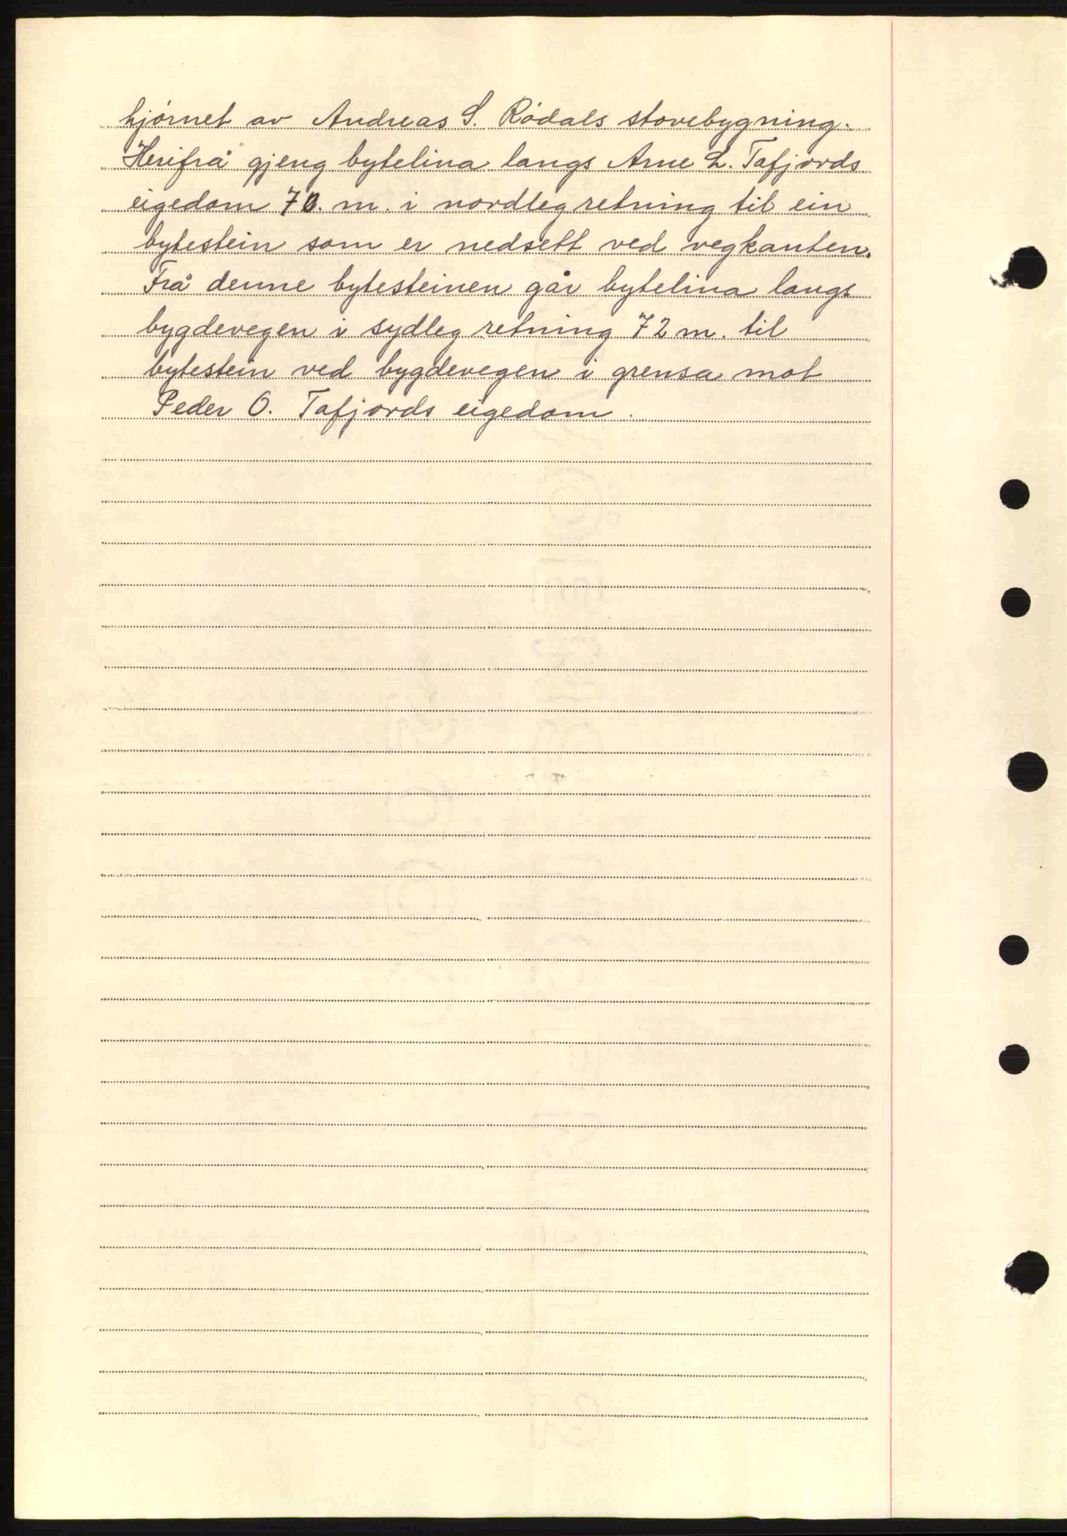 hjørnet av Andreas S. Rødals stovebygning.
Herifrå gjeng bytelina langs Arne L. Tafjords
eigedom 70. m. i nordleg retning til ein
bytestein som er nedsett ved vegkanten.
Frå denne bytesteinen går bytelina langs
bygdevegen i sydleg retning 72 m. til
bytestein ved bygdevegen i grensa mot
Peder O. Tafjords eigedom.